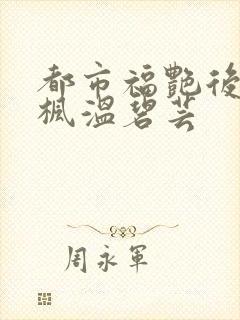 都市福艷後
楓溫碧芸
周永軍